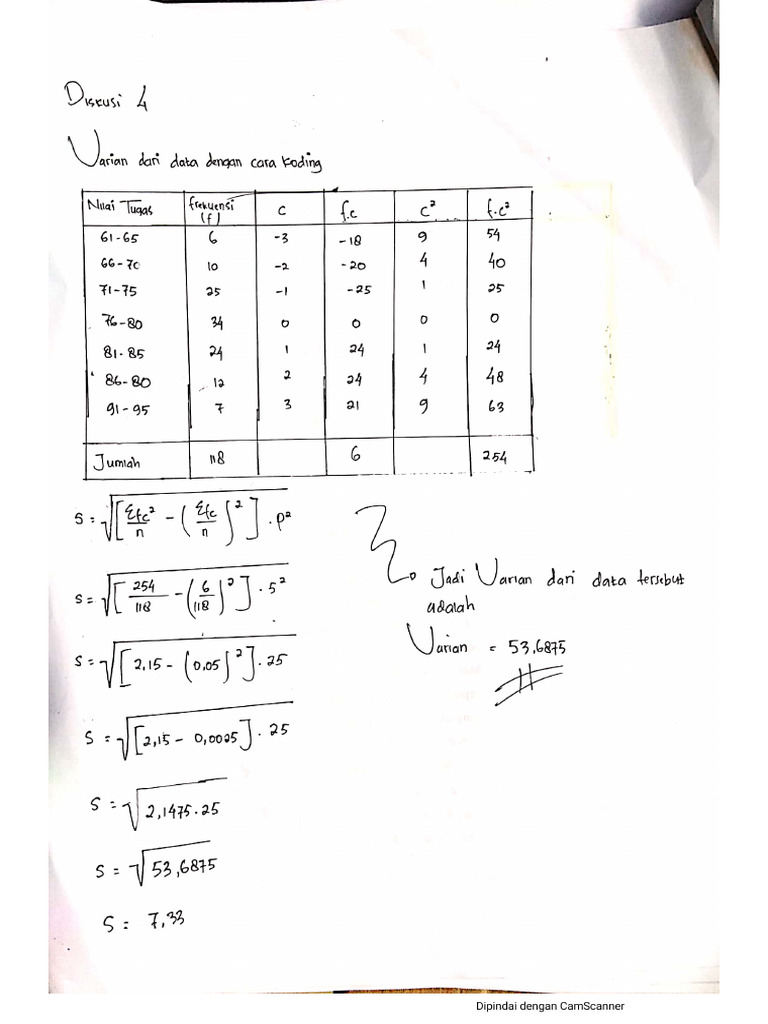 Diskusi 4
Varian dari data dengan cara koding
Nilai Tugas frekuensi (f) c f.c c² f.c²
61-65 6 -3 -18 9 54
66-70 10 -2 -20 4 40
71-75 25 -1 -25 1 25
76-80 34 0 0 0 0
81-85 24 1 24 1 24
86-80 12 2 24 4 48
91-95 7 3 21 9 63
Jumlah 118 6 254
S = √[Σfc²/n - (Σfc/n)²] . p²
S = √[254/118 - (6/118)²] . 5²
S = √[2,15 - (0,05)²] . 25
S = √[2,15 - 0,0025] . 25
S = √2,1475.25
S = √53,6875
S = 7,33
Jadi Varian dari data tersebut
adalah
Varian = 53,6875
Dipindai dengan CamScanner